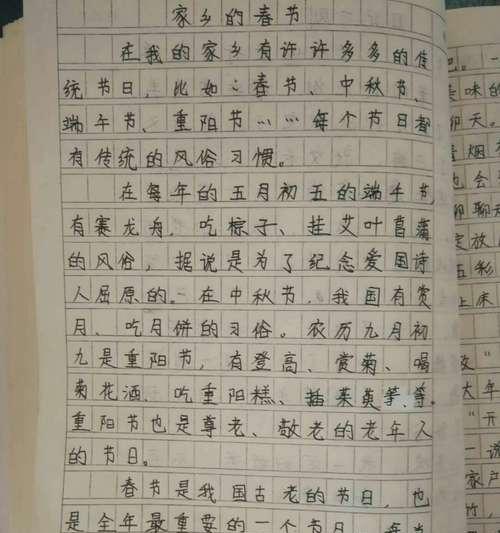 家乡的春节
在我的家乡有许许多多的传
统节日，比如：春节、中秋节、
端午节、重阳节……每个节日都
有传统的风俗习惯。
在每年的五月初五的端午节
有赛龙舟，吃棕子、挂艾叶菖蒲
的风俗，据说是为了纪念爱国诗
人屈原的。在中秋节，我国有赏
月、吃月饼的习俗。农历九月初
九是重阳节，有登高、赏菊、喝
菊花酒、吃重阳糕、插茱萸等等。
重阳节也是尊老、敬老的老年人
的节日。
春节是我国古老的节日，也
是全年最重要的一个节日，每当
吧。一
美味的
聊天。
烟
也会
聊聊天
定放
五彩
上床
放"
大年
"开
一说
家户
竹，